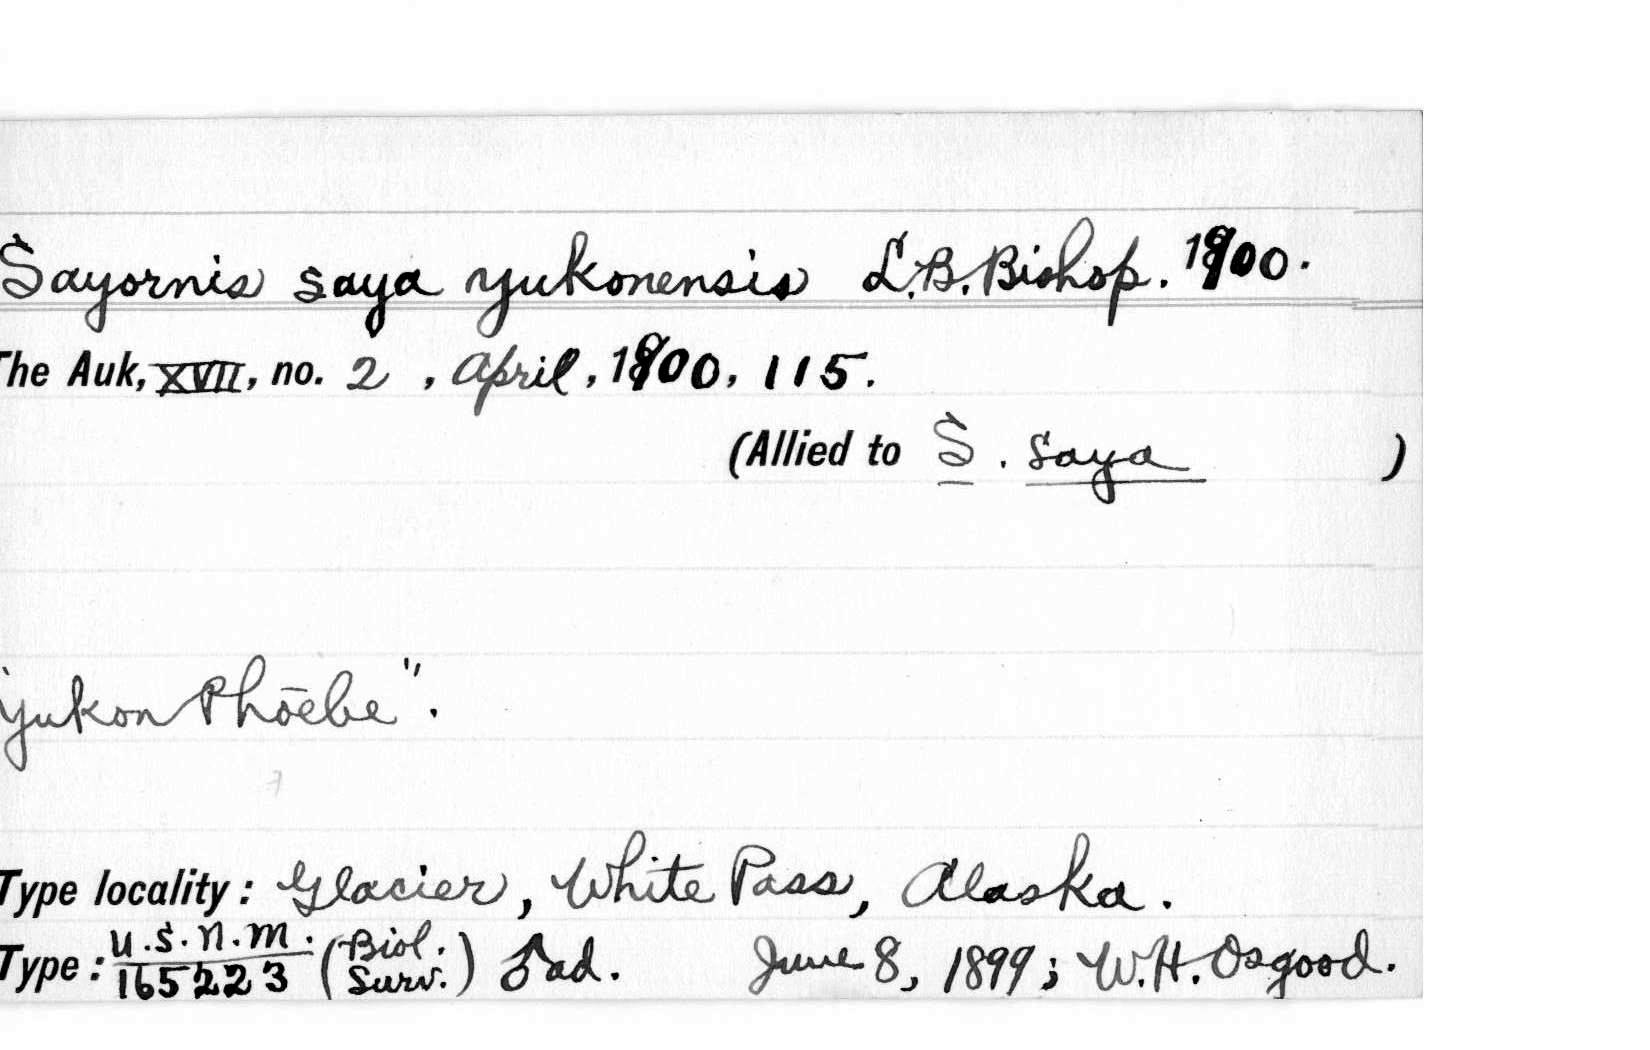 Sayornis saya yukonensis L.B.Bishop. 1900.
The Auk, XVII, no. 2, April, 1900, 115.
(Allied to S. saya )
"Yukon Phōebe".
Type locality: Glacier, White Pass, Alaska.
Type: U.S.N.M. 165223 (Biol. Surv.) ♂ ad. June 8, 1899; W.H. Osgood.